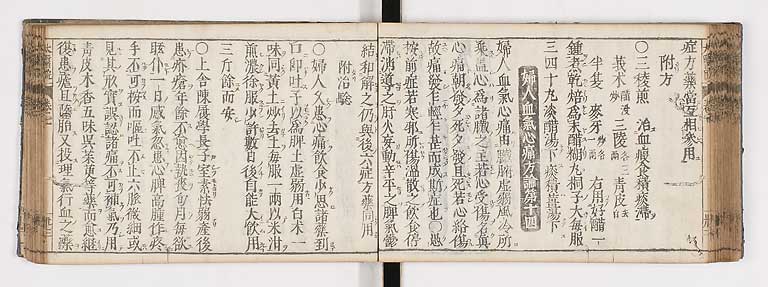 症方藥當互相參用
附方
○三稜煎 治血瘕食積痰滯
莪朮醋浸炒 三稜各三兩 青皮去
半夏 麥芽炒各一兩 右用好醋一
鍾煮乾焙為末醋糊丸桐子大每服
三四十丸淡醋湯下痰積薑湯下
婦人血氣心痛方論第十四
婦人血氣心痛由臟腑虛弱風冷所
乘盖心為諸臟之主若心受傷名真
心痛朝發夕死夕發旦死若心絡傷
故痛發乍輕乍甚而成斯症也○愚
按前症若寒邪所傷溫散之飲食停
滯消導之肝火妄動辛平之脾氣鬱
結和解之仍與後六症方藥同用
附治驗
○婦人久患心痛飲食少思諸藥到
口卽吐予以為脾土虛弱用白朮一
味同黃土炒去土每服一兩以米泔
煎濃徐服少許數日後自能大飲用
三斤餘而安
○上舍陳履學長子室素怯弱產後
患疥瘡年餘不愈因執喪旬月每欲
眩仆一日感氣忽患心脾高腫作疼
手不可按而嘔吐不止六脈微細或
見其形實誤認諸痛不可補氣乃用
青皮木香五味吳茱萸等藥而愈繼
復患瘧且墮胎又投理氣行血之藥